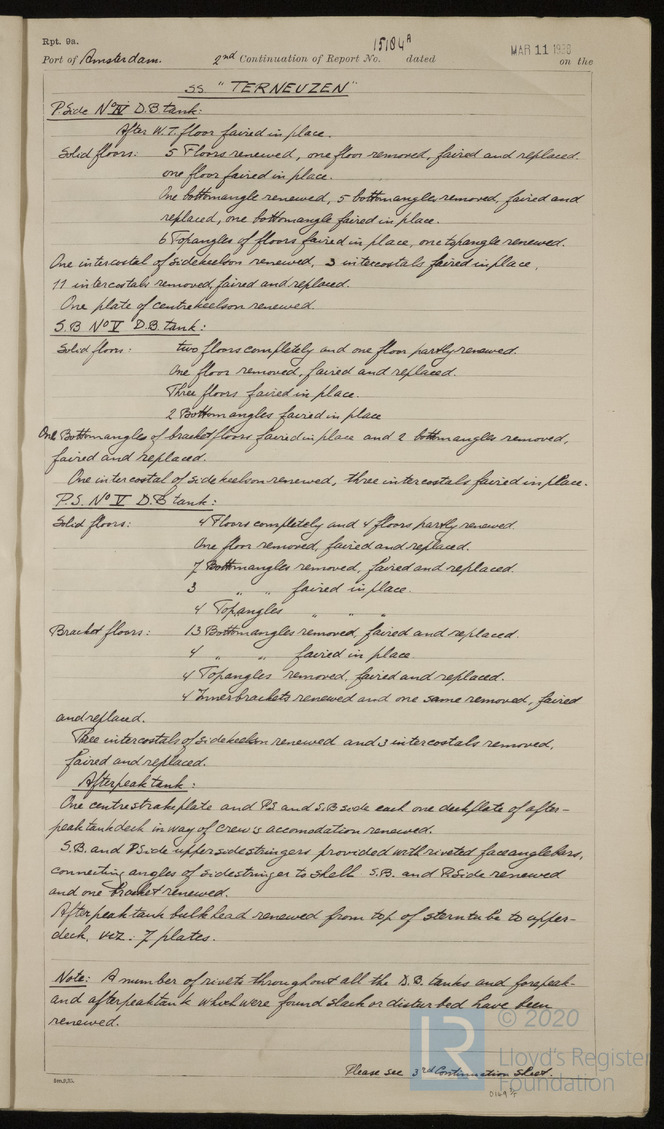 Rpt. 9a.
Port of Amsterdam. 2nd Continuation of Report No. 15104A dated MAR 11 1936 on the
SS "TERNEUZEN"
P. Side No IV D.B tank:
After W.T. floor faired in place.
Solid floors: 5 Floors renewed, one floor removed, faired and replaced.
one floor faired in place.
One bottomangle renewed, 5 bottomangles removed, faired and
replaced, one bottomangle faired in place.
6 Topangles of floors faired in place, one topangle renewed.
One intercostal of sidekeelson renewed, 3 intercostals faired in place,
11 intercostals removed, faired and replaced.
One plate of centrekeelson renewed.
S.B No V D.B. tank:
Solid floors: two floors completely and one floor partly renewed.
One floor removed, faired and replaced.
Three floors faired in place.
2 Bottomangles faired in place
One Bottomangles of bracketfloors faired in place and 2 bottomangles removed,
faired and replaced.
One intercostal of sidekeelson renewed, three intercostals faired in place.
P.S. No V D.B tank:
Solid floors: 4 Floors completely and 4 floors partly renewed.
One floor removed, faired and replaced.
7 Bottomangles removed, faired and replaced.
3 " " faired in place.
4 Topangles " " "
Bracket floors: 13 Bottomangles removed, faired and replaced.
4 " " faired in place.
4 Topangles removed, faired and replaced.
4 Innerbrackets renewed and one same removed, faired
and replaced.
Three intercostals of sidekeelson renewed and 3 intercostals removed,
faired and replaced.
Afterpeak tank:
One centre strake plate and PS and S.B side each one deckplate of after-
peaktankdeck in way of crew's accomodation renewed.
S.B. and P Side upper sidestringers provided with riveted faceanglebars,
connecting angles of sidestringer to shell S.B. and P. Side renewed
and one bracket renewed.
Afterpeak tank bulkhead renewed from top of sterntube to upper-
deck, viz: 7 plates.
Note: A number of rivets throughout all the D.B. tanks and forepeak-
and afterpeaktank which were found slack or disturbed have been
renewed.
© 2020
LR
Lloyd's Register
Foundation
Please see 3rd Continuation Sheet.